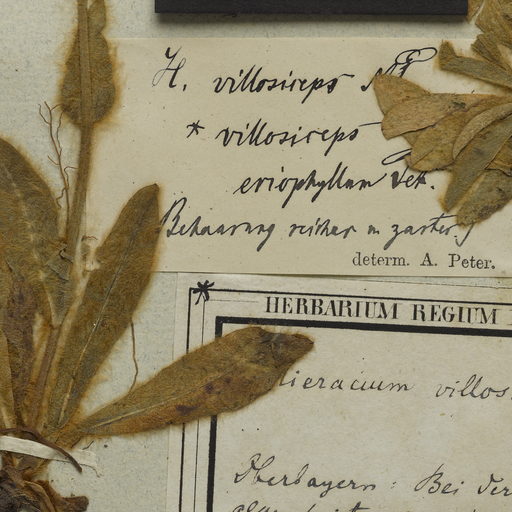 H. villosiceps NP
* villosiceps
eriophyllum Vet.
Behaarung reicher u zarter
determ. A. Peter.
HERBARIUM REGIUM
ieracium villos
Oberbayern: Bei der